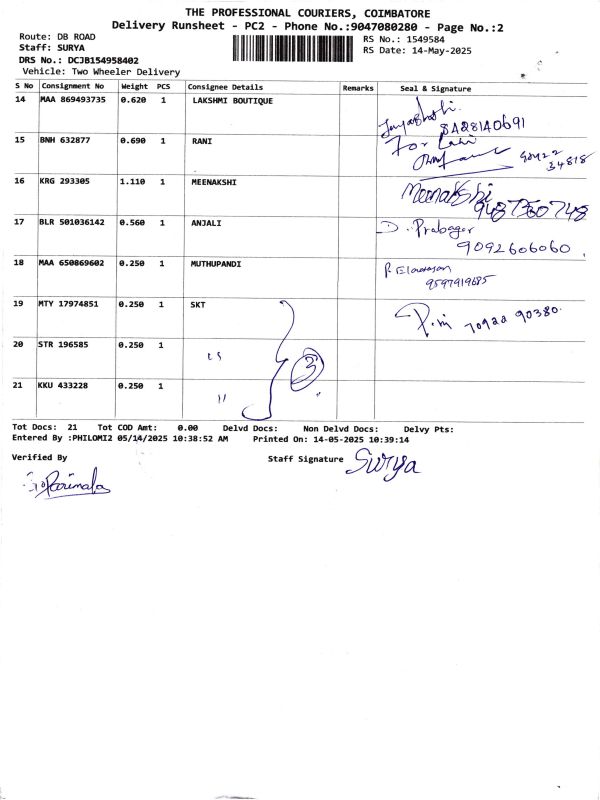 THE PROFESSIONAL COURIERS, COIMBATORE
Delivery Runsheet - PC2 - Phone No.:9047080280 - Page No.:2
Route: DB ROAD RS No.: 1549584
Staff: SURYA RS Date: 14-May-2025
DRS No.: DCJB154958402
Vehicle: Two Wheeler Delivery
S No Consignment No Weight PCS Consignee Details Remarks Seal & Signature
14 MAA 869493735 0.620 1 LAKSHMI BOUTIQUE
8428140691
15 BNH 632877 0.690 1 RANI For
34818
16 KRG 293305 1.110 1 MEENAKSHI Meenakshi
9487360748
17 BLR 501036142 0.560 1 ANJALI D. Prabagar
9092606060.
18 MAA 650869602 0.250 1 MUTHUPANDI
9597919685
19 MTY 17974851 0.250 1 SKT 70922 90380.
20 STR 196585 0.250 1 " 3
21 KKU 433228 0.250 1 "
Tot Docs: 21 Tot COD Amt: 0.00 Delvd Docs: Non Delvd Docs: Delvy Pts:
Entered By :PHILOMI2 05/14/2025 10:38:52 AM Printed On: 14-05-2025 10:39:14
Verified By Staff Signature Surya
Parimala